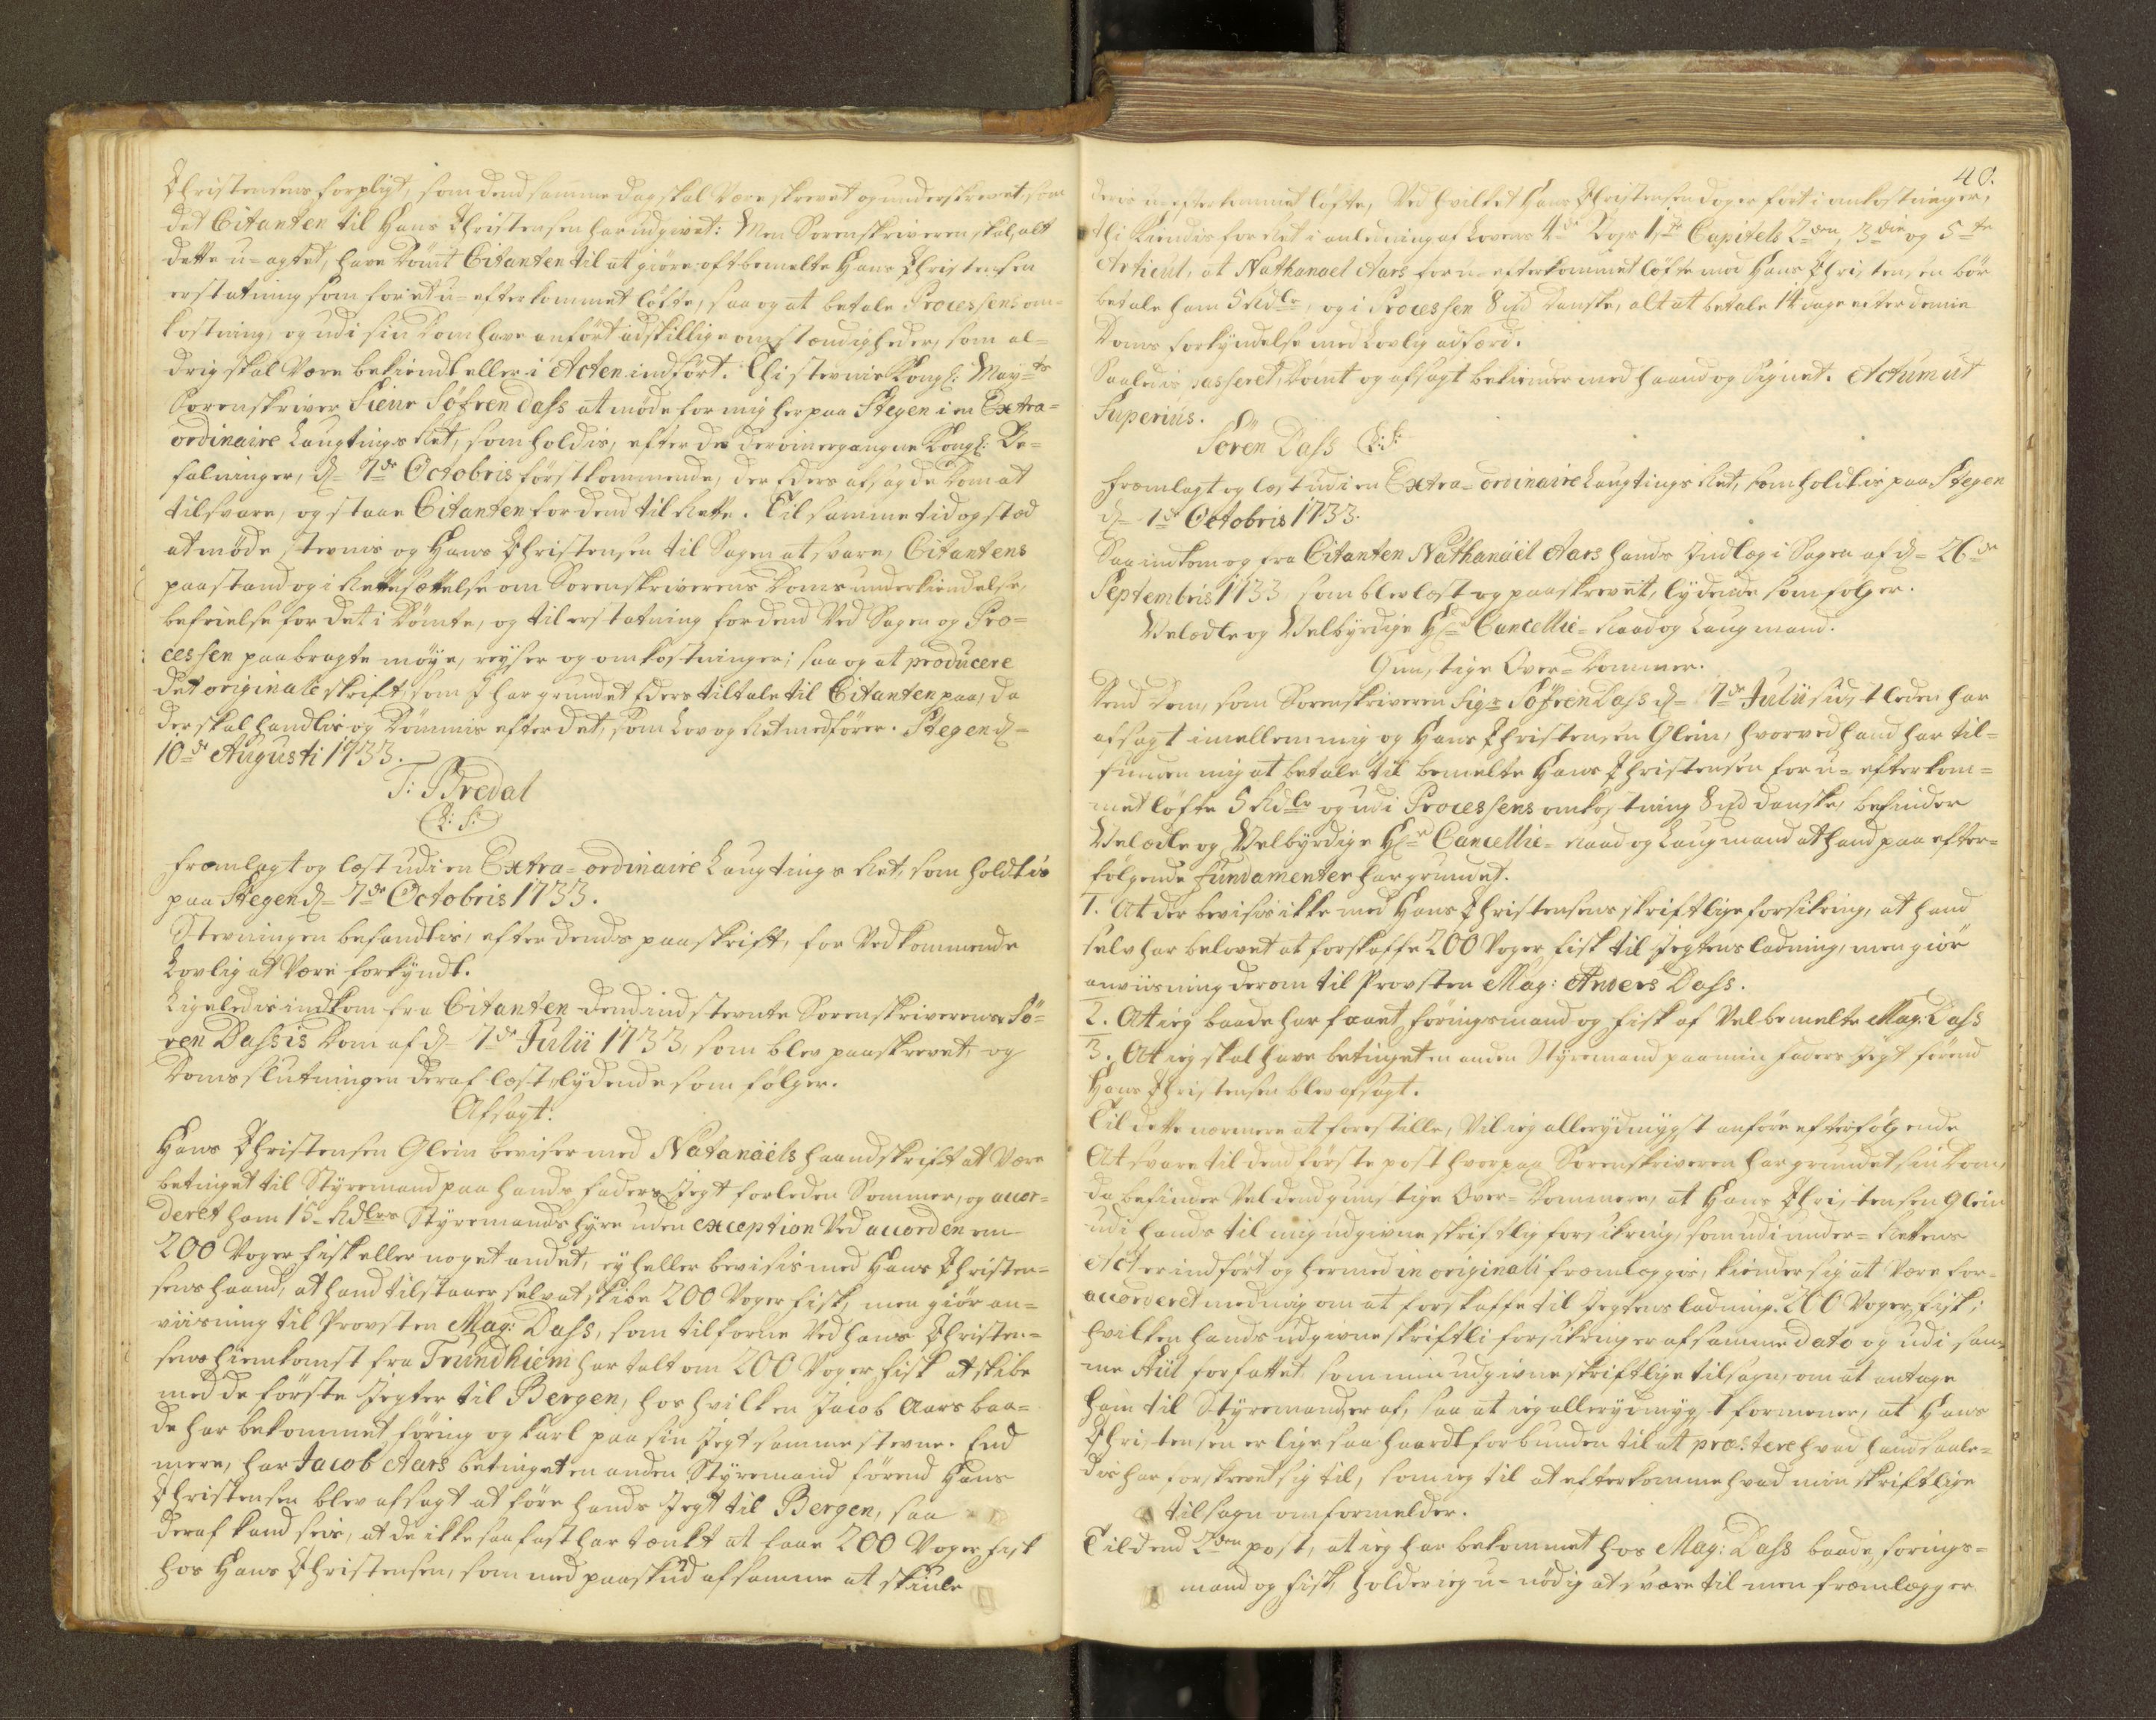 Christensens forpligt, som dend samme dag skal være skrevet og underskrevet, som
det Citanten til Hans Christensen har udgivet: Men Sorenskriveren skal, alt
dette u-agted, have Dömt Citanten til at giøre oftbemelte Hans Christensen
erstatning som for et u-efterkommet löfte, saa og at betale Processens om-
kostning, og udi sin Dom have anfört adskillige omstændigheder, som al-
drig skal være bekiendt eller i Acten indfört. Thi stevnis Kongl: May-ts
Sorenskriver Sieur Söfren Dass at møde for mig her paa Stegen i en Extra-
ordinaire Laugtings Ret, som holdis, efter de derom ergangne Kongl: Be-
falninger, d- 7de Octobris förstkommende, der Eders afsagde Dom at
tilsvare, og staae Citanten for dend til Rette. Til samme tid og stæd
at möde stevnis og Hans Christensen til Sagen at svare, Citantens
paastand og i Rettesættelse om Sorenskriverens Doms underkiendelse,
befrielse for det i Dömte, og til erstatning for dend ved Sagen og Pro-
cessen paabragte möye, reyser og omkostninger; saa og at producere
det originale skrift, som I har grundet Eders tiltale til Citanten paa, da
der skal handlis og Dömmis efter det, som Lov og Ret medförer. Stegen d-
10de Augusti 1733.
T: Bredal
(L: S:)
Fremlagt og læst udi en Extra-ordinaire Laugtings Ret, som holdtis
paa Stegen d- 7de Octobris 1733.
Stevningen befandtis, efter dends paaskrift, for Vedkommende
Lovlig at være forkyndt.
Ligeledis indkom fra Citanten dend indstevnte Sorenskriverens Sö-
ren Dassis Dom af d- 7de Julii 1733, som blev paaskrevet, og
Doms slutningen deraf læst, lydende som fölger.
Afsagt.
Hans Christensen Glein beviser med Natanaëls haandskrift at være
betinget til Styremand paa hands faders Jegt forleden Sommer, og accor-
deret ham 15- Rdlrs Styremands hyre uden exception ved accorden om
200 Voger fisk eller noget andet, ey heller bevisis med Hans Christen-
sens haand, at hand tilstaaer selv at skibe 200 Voger fisk, men giör an-
viisning til Provsten Mag: Dass, som tilforne ved Hans Christen-
sens hiemkomst fra Trundhiem har talt om 200 Voger fisk at skibe
med de förste Jegter til Bergen, hos hvilken Jacob Aars baa-
de har bekommet föring og karl paa sin Jegt samme stevne. End
mere, har Jacob Aars betinget en anden Styremand förend Hans
Christensen blev afsagt at före hands Jegt til Bergen, saa
deraf kand seis, at de ikke saa fast har tænkt at faae 200 Voger fisk
hos Hans Christensen, som med paaskud af samme at skiule
40.
deris u-efterkommet löfte, ved hvilket Hans Christensen dog er fört i omkostninger,
thi kiendis for Ret i anledning af Lovens 4de Bogs 1ste Capitels 2den, 3die og 5te
Articul, at Nathanael Aars for u-efterkommet löfte mod Hans Christensen bör
betale ham 5 Rdlr, og i Processen 8 ß Danske, alt at betale 14 dage efter denne
Doms forkyndelse med Lovlig adfærd.
Saaledis passeret, Dömt og afsagt bekiender med haand og Signet. Actum ut
Superius.
Sören Dass (L: S:)
Fremlagt og læst udi en Extra-ordinaire Laugtings Ret, som holdtis paa Stegen
d- 7de Octobris 1733.
Saa indkom og fra Citanten Nathanaël Aars hands Indlæg i Sagen af d- 26de
Septembris 1733 som blev læst og paaskrevet, lydende som fölger.
Velædle og Velbyrdige Hr Cancellie-Raad og Laugmand.
Gunstige Over-Dommer.
Dend Dom, som Sorenskriveren Sigr Söfren Dass d- 7de Julii sidstleden har
afsagt imellem mig og Hans Christensen Glein, hvorved hand har til-
funden mig at betale til bemelte Hans Christensen for u-efterkom-
met löfte 5 Rdlr og udi Processens omkostning 8 ß danske, befinder
Velædle og Velbyrdige Hr Cancellie-Raad og Laugmand at hand paa efter-
fölgende Fundamenter har grundet.
1. At der bevisis ikke med Hans Christensens skriftlige forsikring, at hand
selv har belovet at forskaffe 200 Voger fisk til Jegtens ladning, men giör
anviisning derom til Provsten Mag: Anders Dass.
2. At ieg baade har faaet föringsmand og fisk af Velbemelte Mag: Dass
3. At ieg skal have betinget en anden Styremand paa min faders Jegt förend
Hans Christensen blev afsagt.
Til dette nærmere at forestille, vil ieg allerydmygst anföre efterfölgende
At svare til dend förste post hvorpaa Sorenskriveren har grundet sin Dom,
da befinder Vel dend gunstige Over-Dommere, at Hans Christensen Glein
udi hands til mig udgivne skriftlig forsikring, som udi under-Rettens
Act er indfört og hermed in originali fremlæggis, kiender sig at være for-
accorderet med mig om at forskaffe til Jegtens ladning 200 Voger fisk;
hvilken hands udgivne skriftli forsikring er af samme dato og udi sam-
me Stiil forfattet som min udgivne skriftlige tilsagn, om at antage
ham til Styremand er af, saa at ieg allerydmygst formener, at Hans
Christensen er lige saa haardt forbunden til at præstere hvad hand saale-
dis har forskrevet sig til, som ieg til at efterkomme hvad min skriftlige
tilsagn om formelder.
Til dend 2den post, at ieg har bekommet hos Mag: Dass baade förings-
mand og fisk, holder ieg u-nödig at svare til men fremlægger